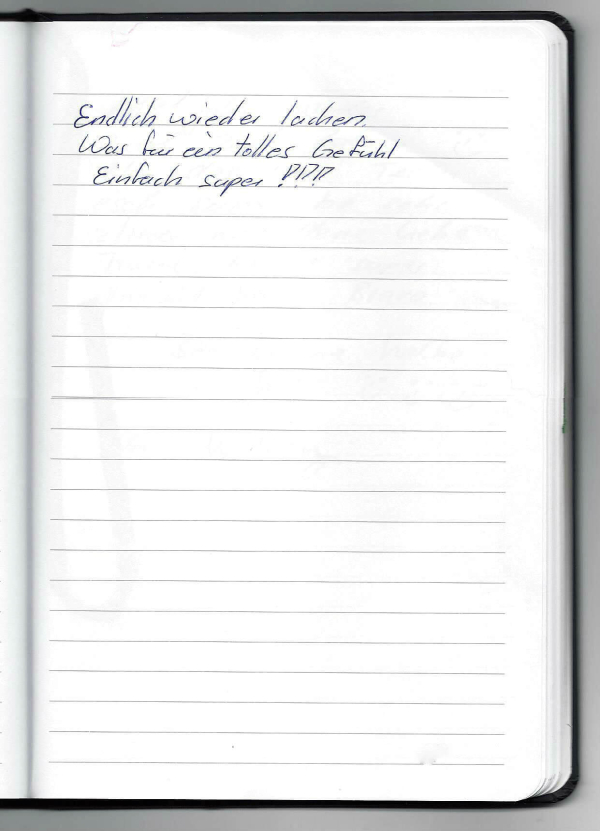 Endlich wieder lachen
Was für ein tolles Gefühl
Einfach super !!!!